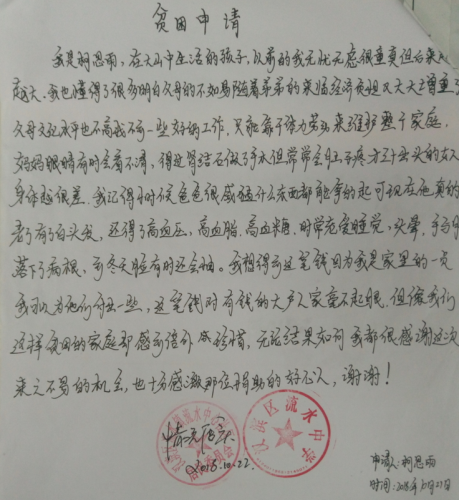 贫困申请
我是柯思雨,在大山中生活的孩子,以前的我无忧无虑很重负但后来
越大,我也懂得了很多明白父母的不如易随着弟弟的来临经济负担又大大
父母文化水平也不高找不一些好的工作,只能靠干体力劳动来维护整个家庭
妈妈眼睛有时会看不清,得过肾结石做了手术但常常会
身体越很差,我记得小时候爸爸很感什么东西都能拿的起可现在他真的
老了有了白头发,还得了高血压,高血脂,高血糖,时常想睡觉,头晕,手
落下了病根,可冬天脸有时还会抽。我想得到这笔钱因为我是家里的一员
我可以为他们分担一些,这笔钱对有钱的大户人家毫不起眼,但像我们
这样贫困的家庭却感到倍外 珍惜,无论结果如何我都很感谢这次
来之不易的机会,也十分感激那位捐助的好心人,谢谢!
情况属实
2018.10.22.
区流水中学
申请人:柯思雨
时间:2018年10月22日